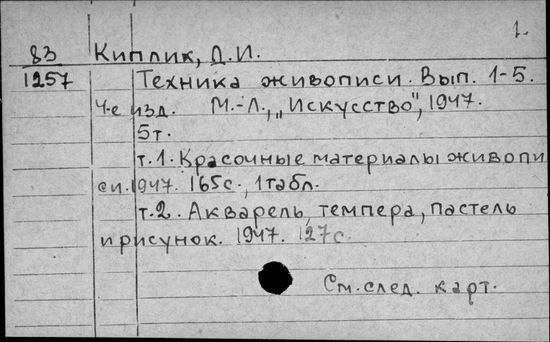 1.
83 Киплик, Д.И.
1257 Техника живописи. Вып. 1-5.
4-е изд. М.-Л., „Искусство", 1947.
5т.
т.1. Красочные материалы живопи
си. 1947. 165с., 1табл.
т.2. Акварель, темпера, пастель
и рисунок. 1947. 127с.
См. след. карт.